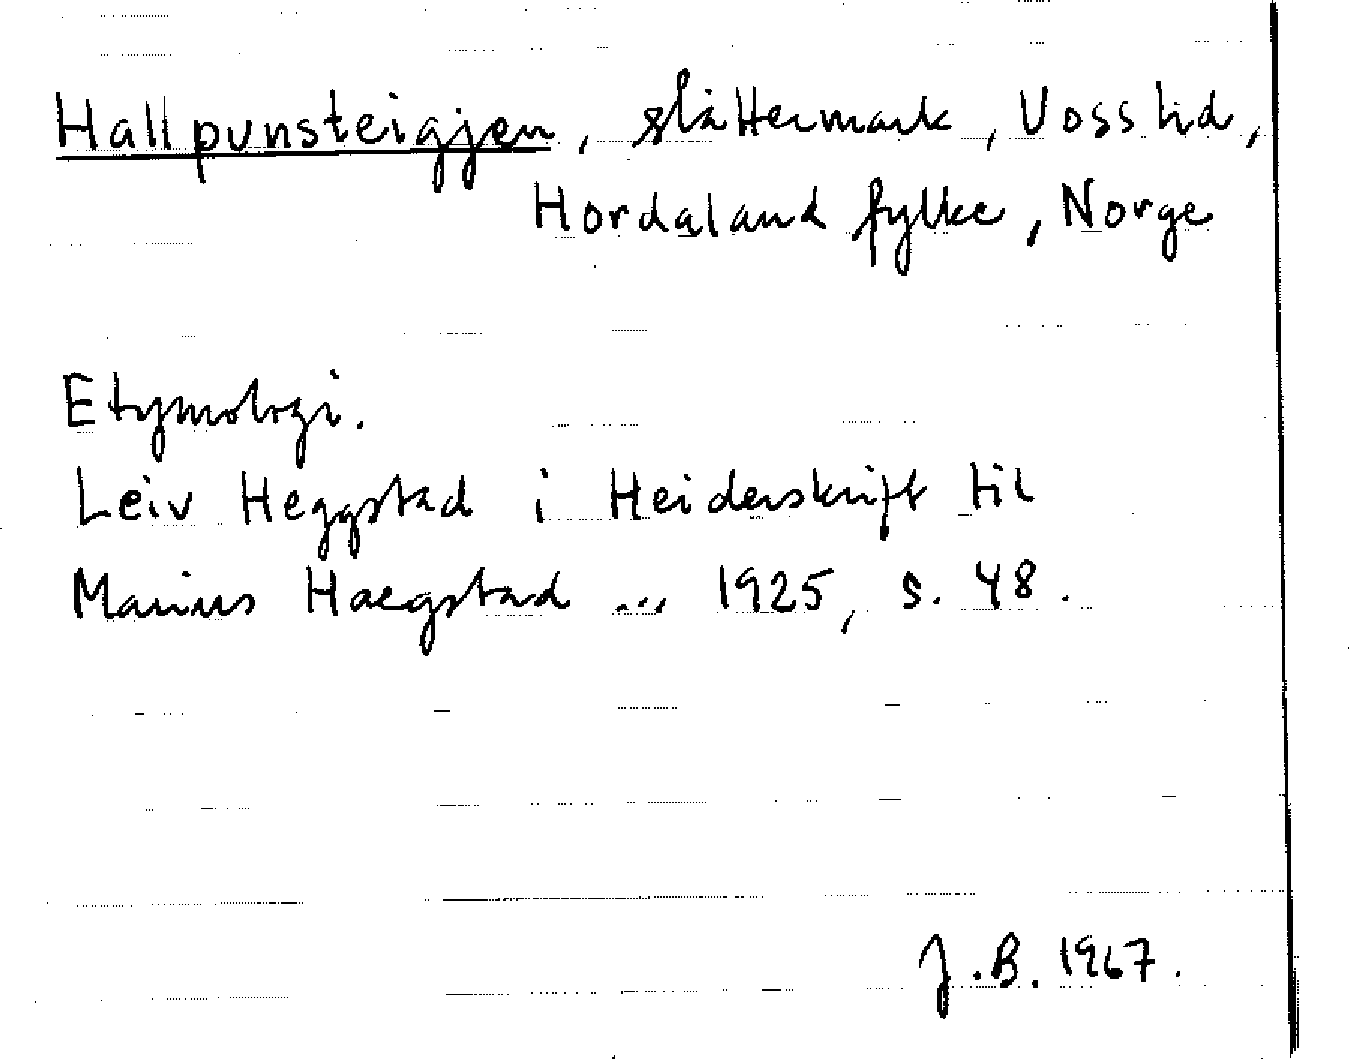 Hallpunsteigjen, slåttermark, Voss hd,
Hordaland fylke, Norge
Etymologi.
Leiv Heggstad i Heiderskrift til
Marius Hægstad ... 1925, s. 48.
J.B. 1967.